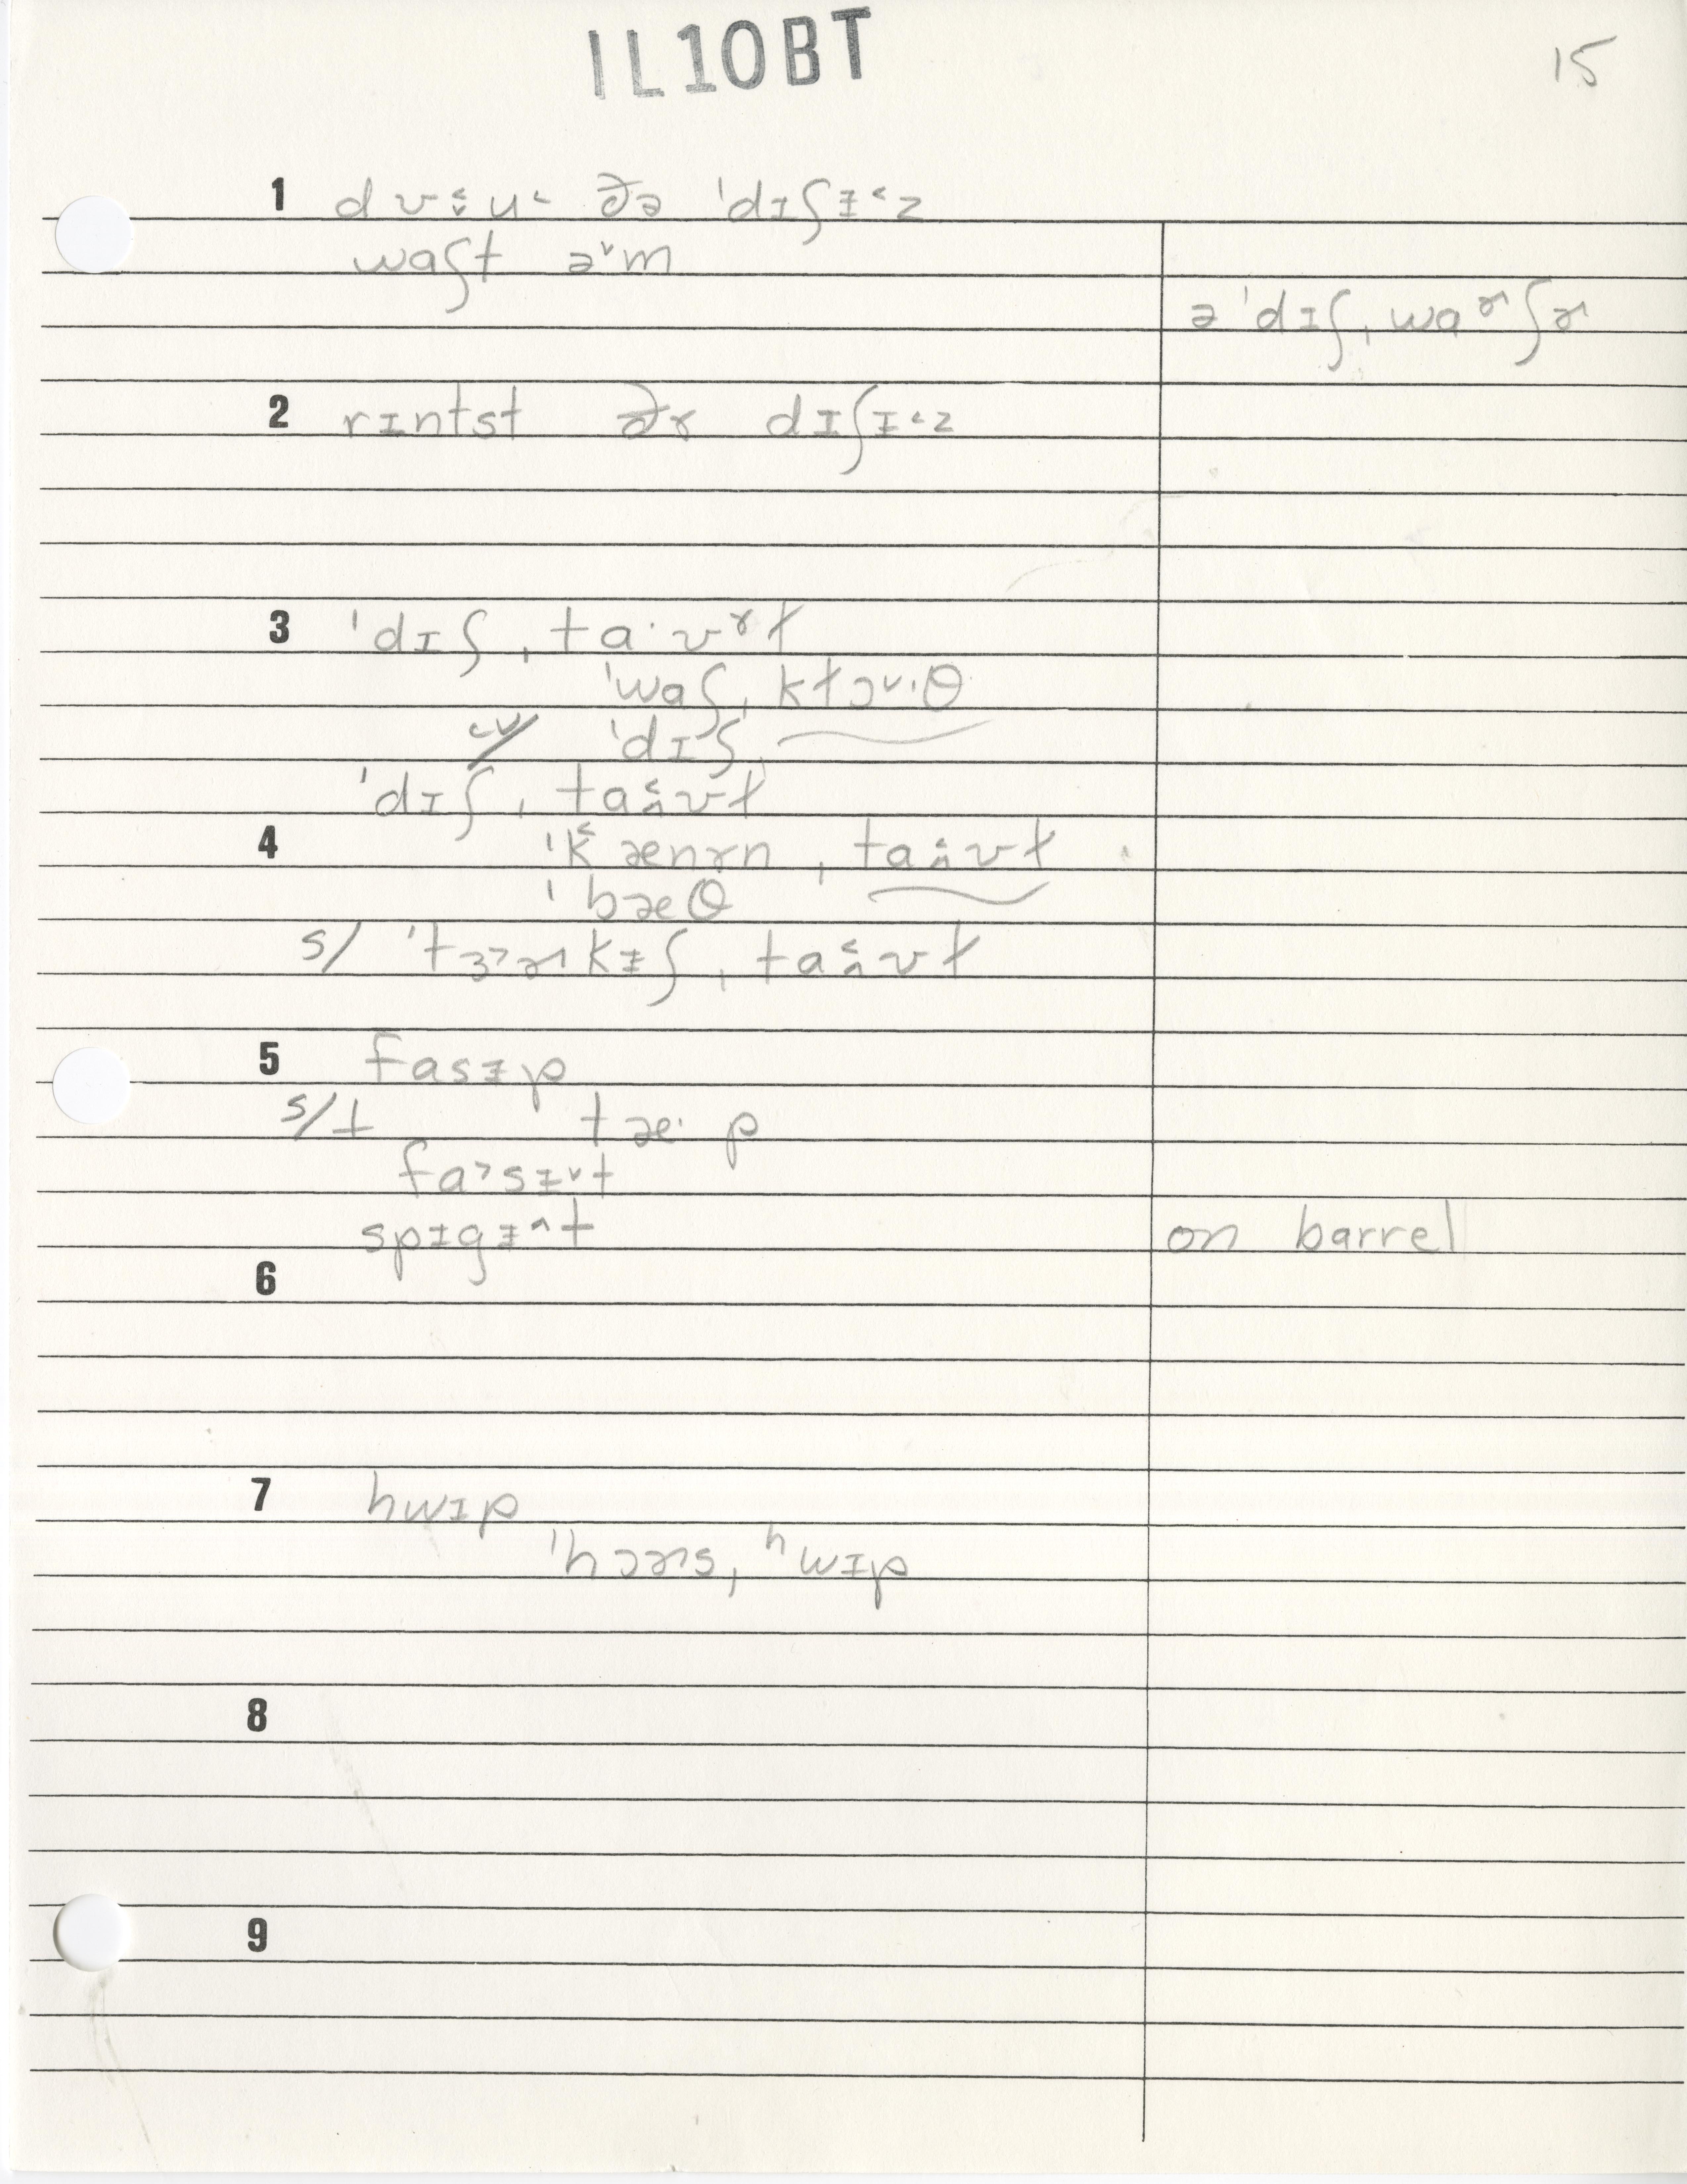 IL10BT
15
1 dʊ˂̤u˂ ðə ˈdɪʃɨ˂z
waʃt ə˅m
ə ˈdɪʃˌwaɚʃɚ
2 rɪntst ðɚ dɪʃɪ˂z
3 ˈdɪʃˌta·ʊɤɫ
ˈwaʃˌkɫɔ˅·θ
cv/ ˈdɪʃˌ
ˈdɪʃˌta˂̤ʊɫ
4 ˈk˂ænɤnˌta˂̤ʊɫ
ˈbæθ
s/ ˈtɜ˃ɚkɨʃˌta˂̤ʊɫ
5 fasɨp
s/t tæ·p
fa˃sɨ˅t
spɪgɪ˄t
on barrel
6
7 hwɪp
ˈhɔɚsˌʰwɪp
8
9